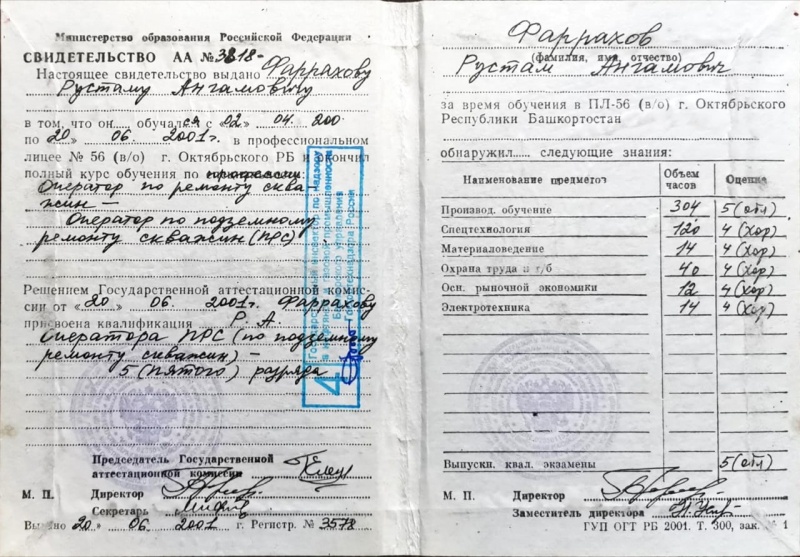 Министерство образования Российской Федерации
СВИДЕТЕЛЬСТВО АА № 3818-
Настоящее свидетельство выдано Фаррахову
Рустаму Ангамовичу
в том, что он обучался с «02» 04. 200
по «20» 06. 2001г. в профессиональном
лицее № 56 (в/о) г. Октябрьского РБ и окончил
полный курс обучения по профессии:
Оператор по ремонту сква-
жин –
Оператор по подземному
ремонту скважин (ПРС)
Решением Государственной аттестационной комис-
сии от «20» 06. 2001г. Фаррахову
присвоена квалификация Р. А
Оператора ПРС (по подземному
ремонту скважин) –
5 (пятого) разряда
4
Председатель Государственной
аттестационной комиссии
М. П. Директор
Секретарь
Выдано 20» 06. 2001 г. Регистр. № 3578
Фаррахов
(фамилия, имя, отчество)
Рустам Ангамович
за время обучения в ПЛ-56 (в/о) г. Октябрьского
Республики Башкортостан
обнаружил..... следующие знания:
Наименование предметов Объем часов Оценка
Производ. обучение 304 5 (отл)
Спецтехнология 120 4 (хор)
Материаловедение 14 4 (хор)
Охрана труда и т/б 40 4 (хор)
Осн. рыночной экономики 12 4 (хор)
Электротехника 14 4 (хор)
Выпускн. квал. экзамены 5 (отл)
М. П. Директор
Заместитель директора
ГУП ОГТ РБ 2001. Т. 300, зак. № 1